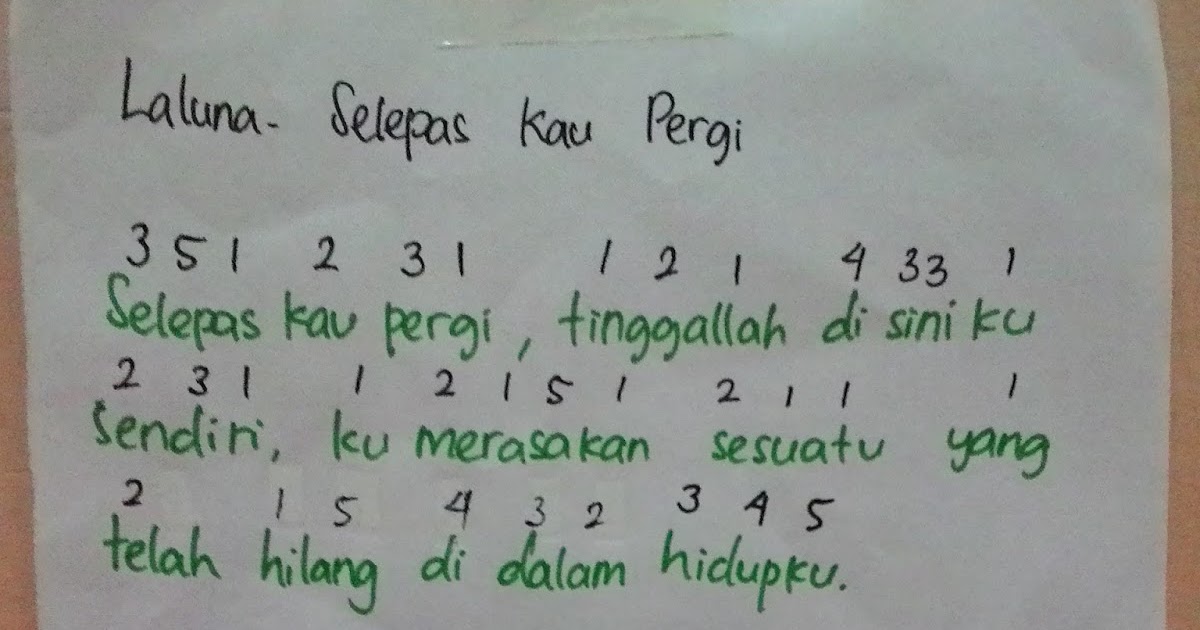 Laluna - Selepas Kau Pergi
3 5 1 2 3 1 1 2 1 4 33 1
Selepas kau pergi, tinggallah di sini ku
2 3 1 1 2 1 5 1 2 1 1 1
Sendiri, ku merasakan sesuatu yang
2 1 5 4 3 2 3 4 5
telah hilang di dalam hidupku.